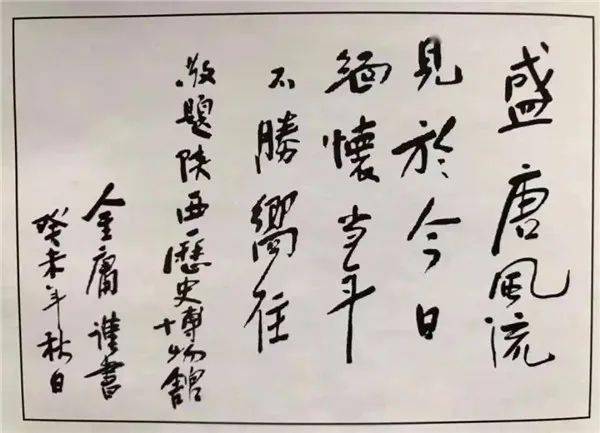 盛唐風流
見於今日
緬懷当年
不勝嚮往
敬題陕西歷史博物館
金庸謹書
癸未年秋日